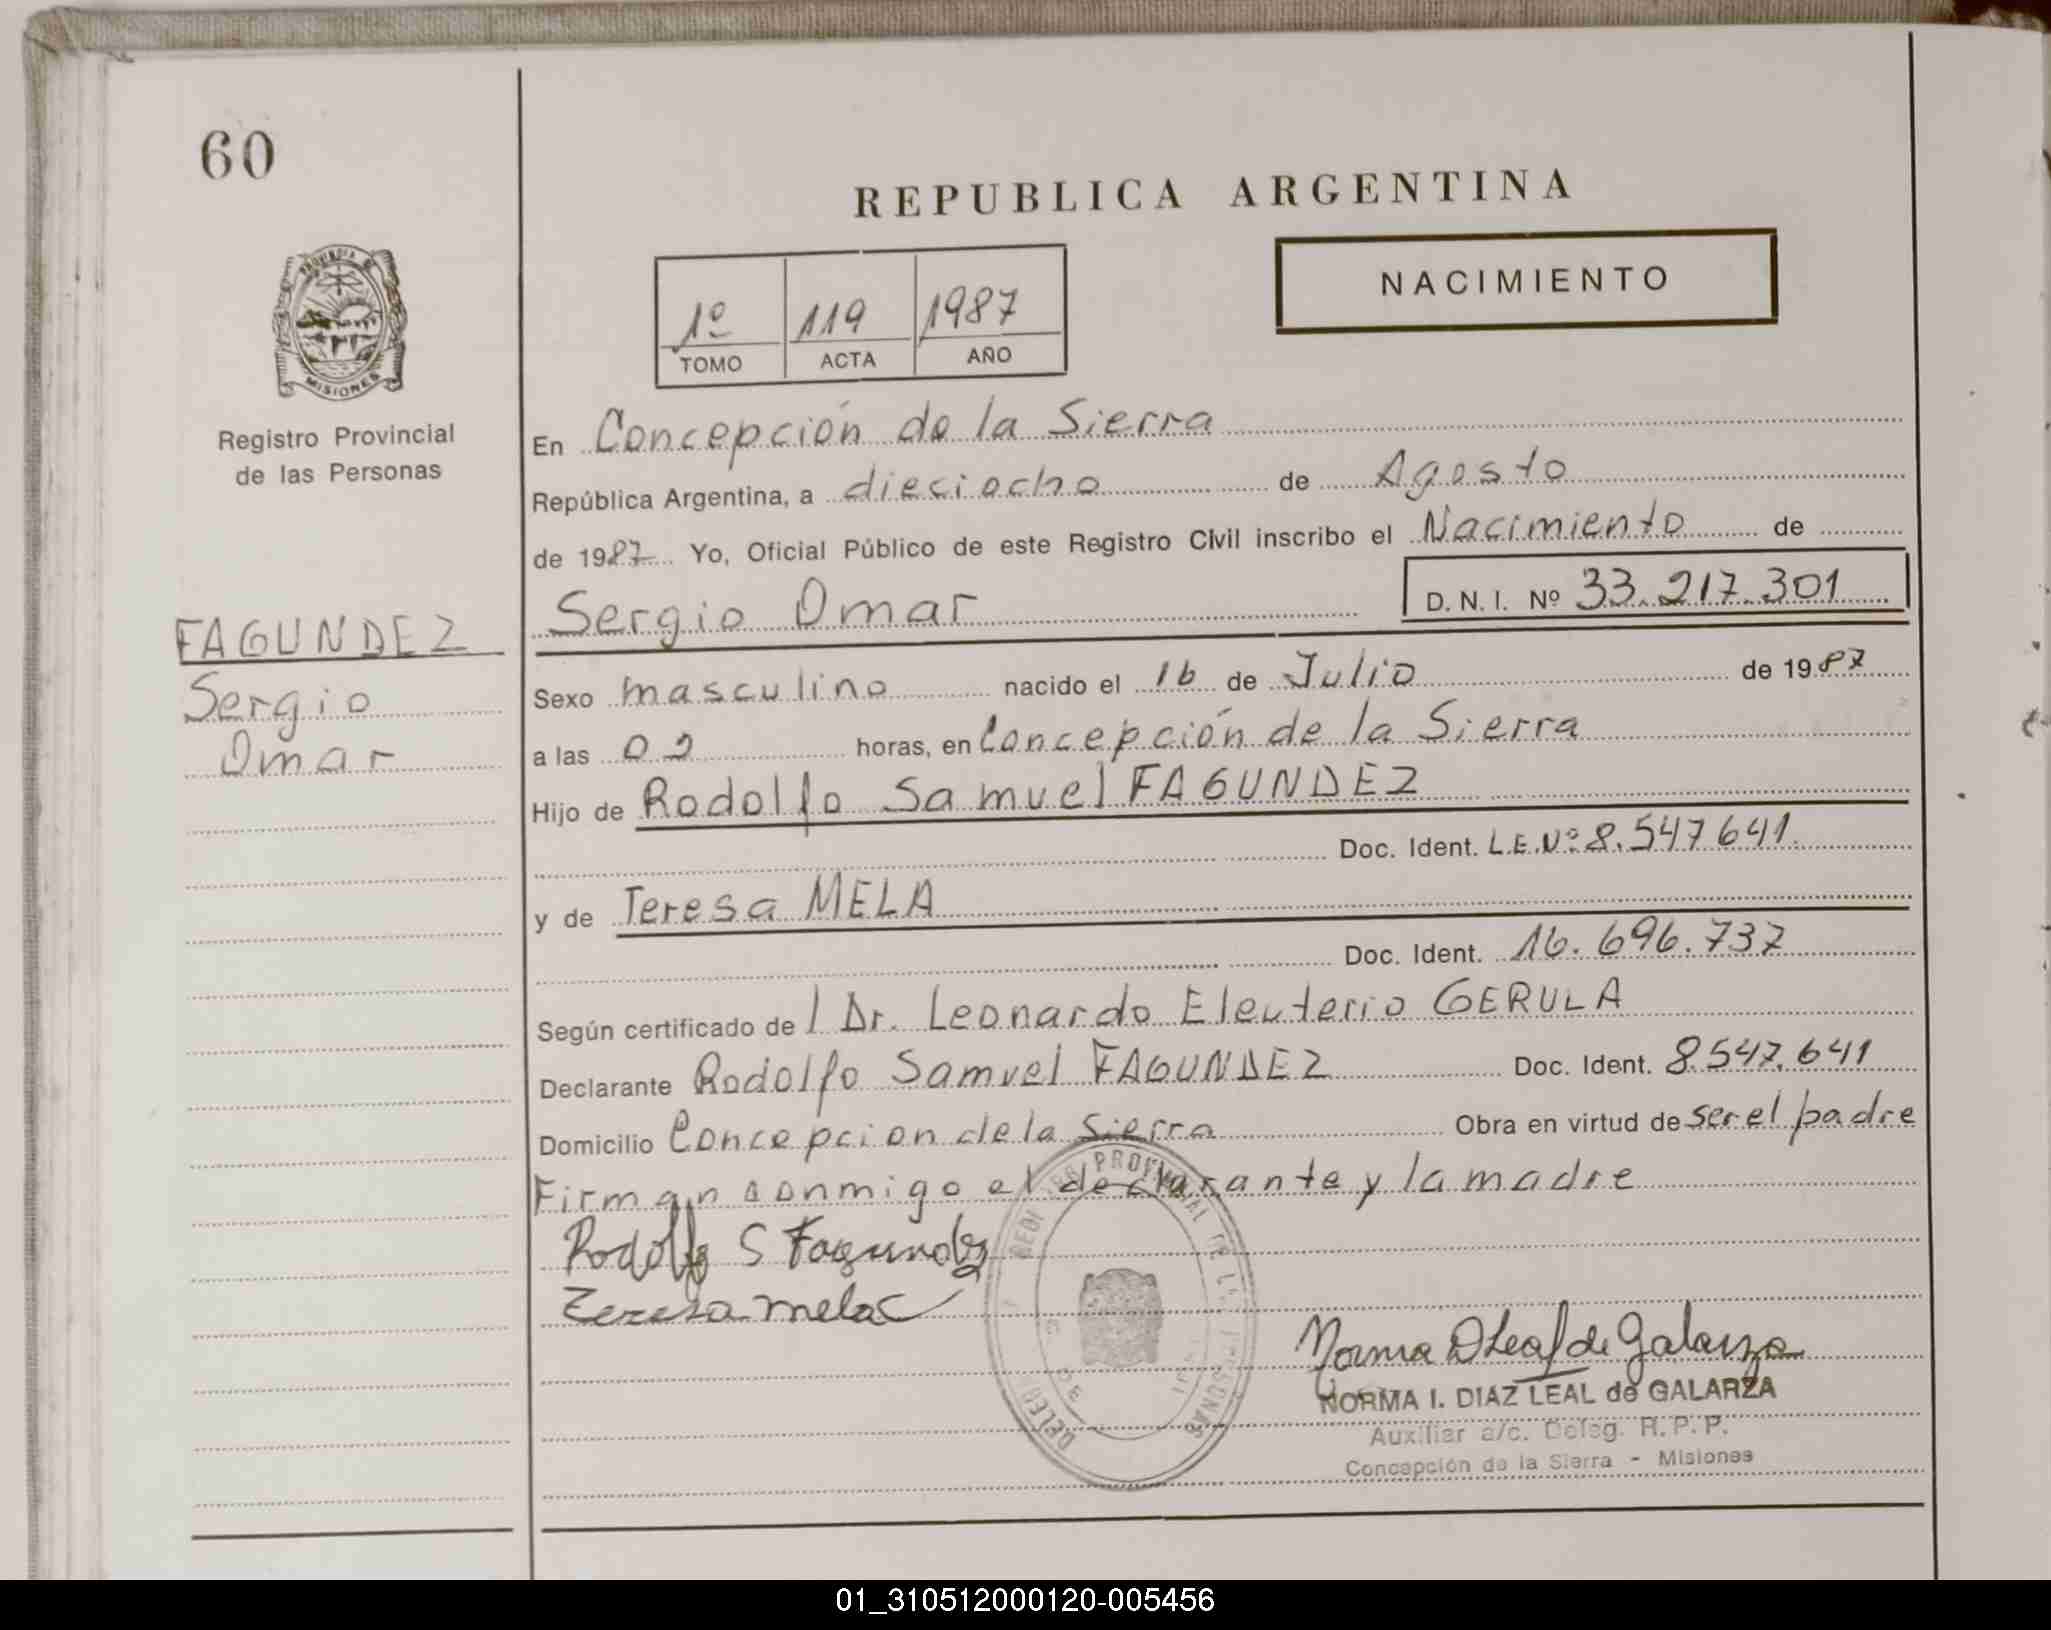 60
REPUBLICA ARGENTINA
NACIMIENTO
1º 119 1987
TOMO ACTA AÑO
PROVINCIA DE
MISIONES
Registro Provincial
de las Personas
FAGUNDEZ
Sergio
Omar
En Concepción de la Sierra
República Argentina, a dieciocho de Agosto
de 1987 Yo, Oficial Público de este Registro Civil inscribo el Nacimiento de
Sergio Omar D. N. I. Nº 33.217.301
Sexo masculino nacido el 16 de Julio de 1987
a las 02 horas, en Concepción de la Sierra
Hijo de Rodolfo Samuel FAGUNDEZ
Doc. Ident. L.E.Nº 8.547641.
y de Teresa MELA
Doc. Ident. 16.696.737
Según certificado del Dr. Leonardo Eleuterio GERULA
Declarante Rodolfo Samuel FAGUNDEZ Doc. Ident. 8.547.641
Domicilio Concepcion de la Sierra Obra en virtud de ser el padre
Firman conmigo el declarante y la madre
Rodolfo S Fagundez
Teresa Mela
PROVINCIAL DE LAS PERSONAS
Norma D Leal de Galarza
NORMA I. DIAZ LEAL de GALARZA
Auxiliar a/c. Deleg. R. P. P.
Concepción de la Sierra - Misiones
01_310512000120-005456